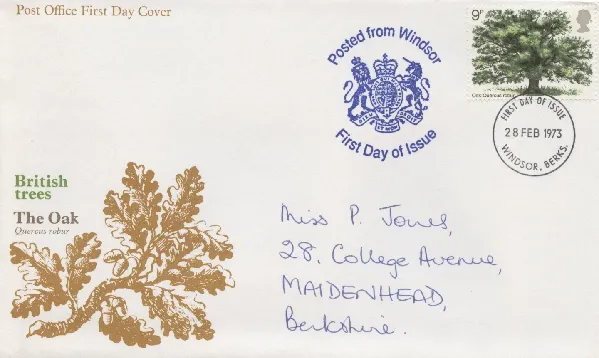 Post Office First Day Cover
Posted from Windsor
First Day of Issue
9P
Oak Quercus robur
FIRST DAY OF ISSUE
28 FEB 1973
WINDSOR, BERKS.
British
trees
The Oak
Quercus robur
Miss P. Jones,
28, College Avenue,
MAIDENHEAD,
Berkshire.